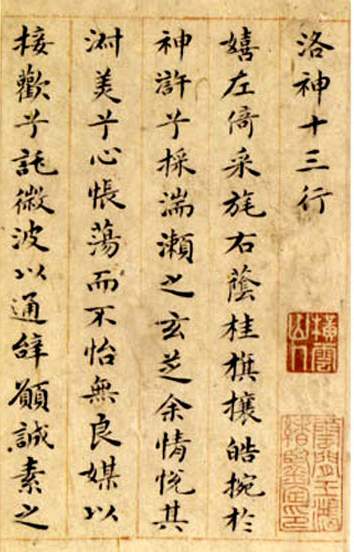 洛神十三行
嬉左倚采旄右蔭桂旗攘皓捥於
神滸兮採湍瀨之玄芝余情悅其
淑美兮心悵蕩而不怡無良媒以
接歡兮託微波以通辞願誠素之
橫雲山人